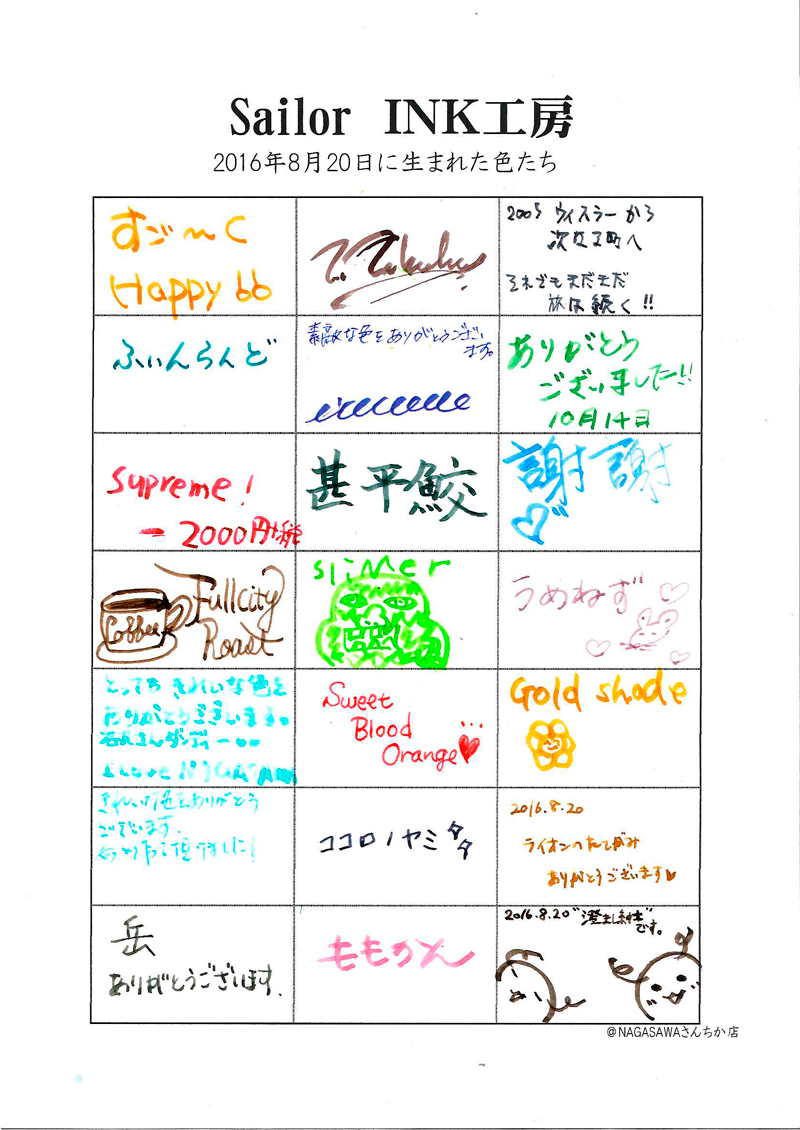 Sailor INK工房
2016年8月20日に生まれた色たち
すご〜く
Happy 66
2005 ウィスラーから
次なる町へ
それでもまだまだ
旅は続く!!
ふぃんらんど
素敵な色をありがとうござい
ます。
ありがとう
ございました!!
10月14日
Supreme!
ー2000円+税
甚平鮫
謝謝
Coffee
Fullcity
Roast
slimer
うめねず
とっても きれいな色を
ありがとうございます。
石丸さんダンディー
I Love NAGASAWA
Sweet
Blood
Orange
Gold shade
きれいな色をありがとう
ございます。
ココロノヤミタタ
2016.8.20
ライオンのたてがみ
ありがとうございます
岳
ありがとうございます.
ももかん
2016.8.20
です。
@NAGASAWAさんちか店